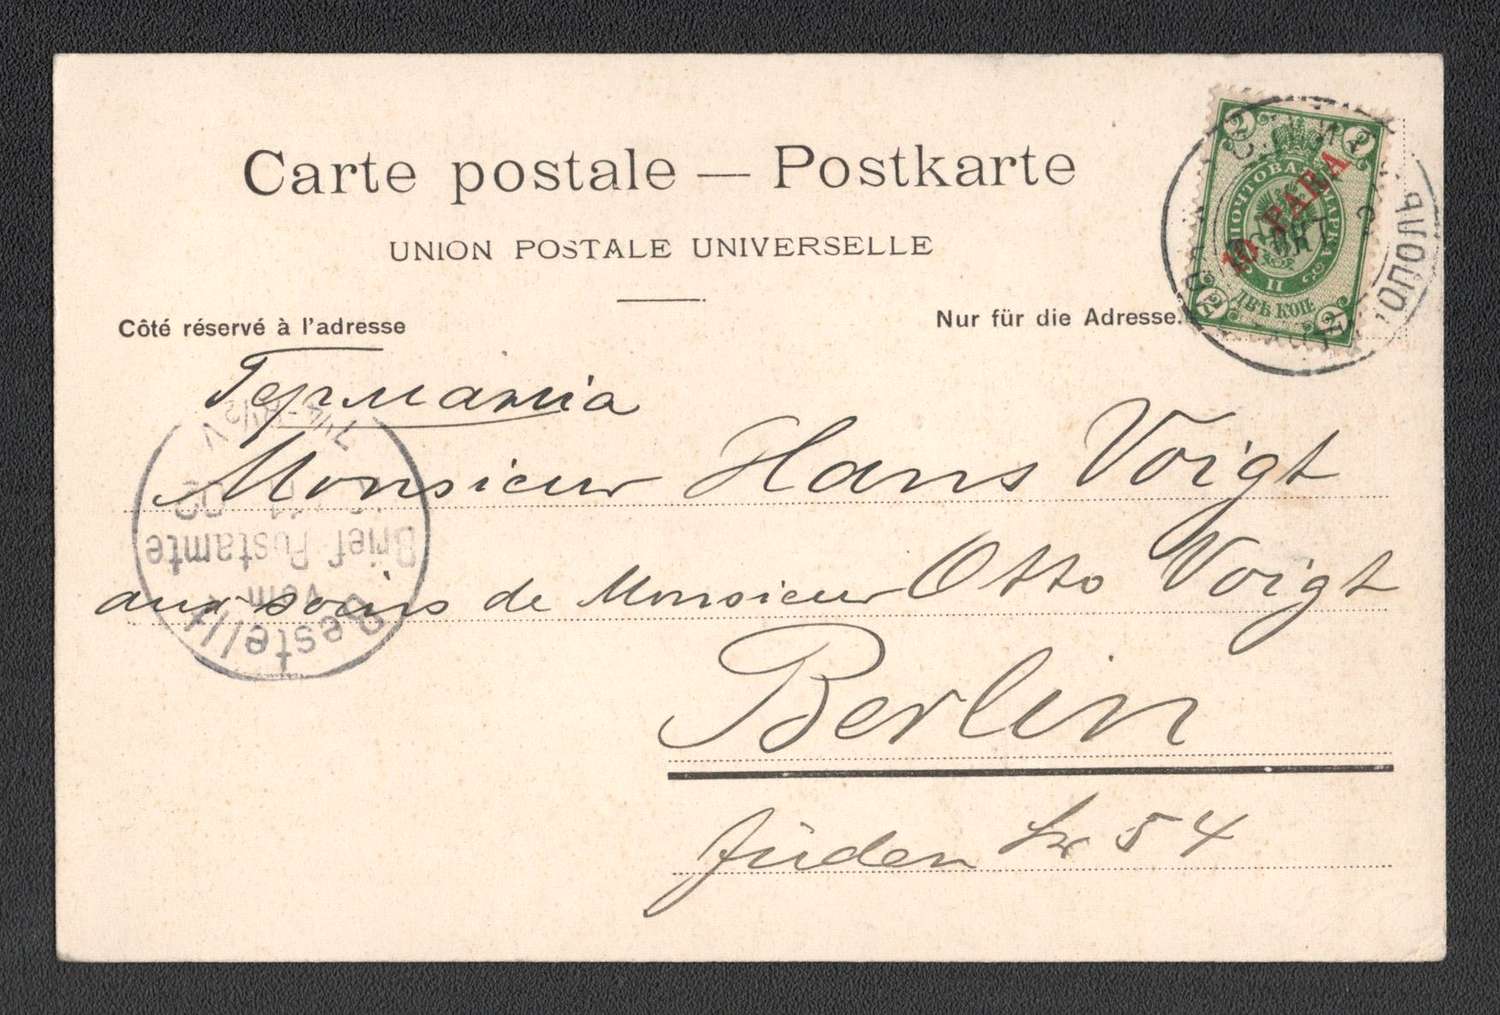 Carte postale — Postkarte
UNION POSTALE UNIVERSELLE
Côté réservé à l'adresse
Nur für die Adresse.
2 2
ПОЧТОВАЯ МАРКА
10 PARA
ДВѢ КОП
2 2
Германія
Monsieur Hans Voigt
aux soins de Monsieur Otto Voigt
Berlin
Jüden str 54
Bestellt
vom
Brief-Postamte
11 02
7¼-8½ V